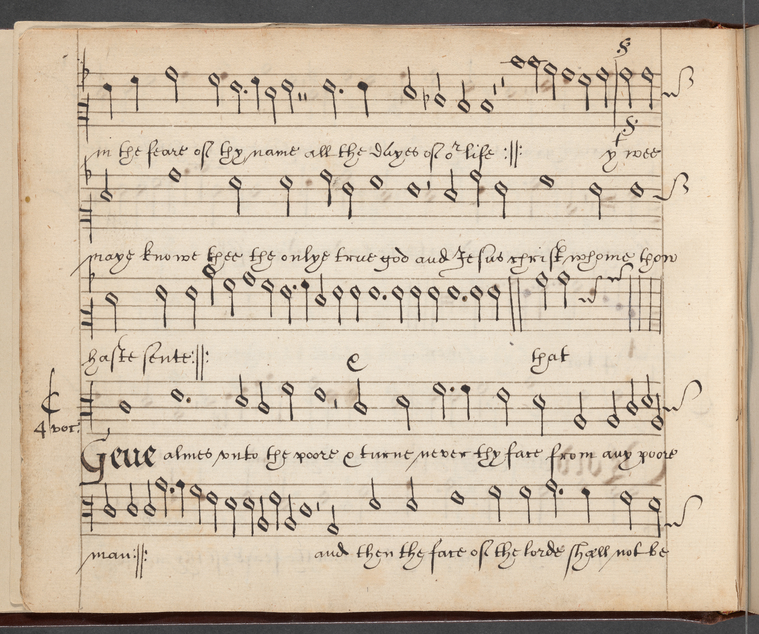 in the feare of thy name all the dayes of or life :||:
yt wee
maye knowe thee the onlye true god and Jesus christ whome thou
haste sente:||: e that
4 voc:
Geue almes vnto the poore & turne never thy face from any poore
man:||: and then the face of the lorde shall not be